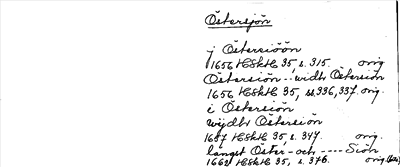 Östersjön
j Östersiöön
1656 HSkH 35, s. 315. orig
Östersiön.. widh Östersiön
1656 HSkH 35, ss. 336, 337. orig.
i Östersiön
wijdh Östersiön
1657 HSkH 35, s. 347. orig.
långst Öster- och ---- Siön
1662 HSkH 35, s. 376. orig